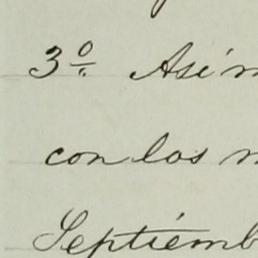 3º Asim
con los n
Septiemb